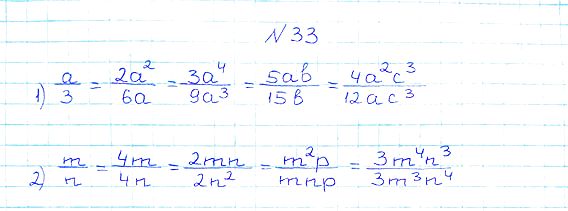 №33
1) a/3 = 2a²/6a = 3a⁴/9a³ = 5ab/15b = 4a²c³/12ac³
2) m/n = 4m/4n = 2mn/2n² = m²p/mnp = 3m⁴n³/3m³n⁴